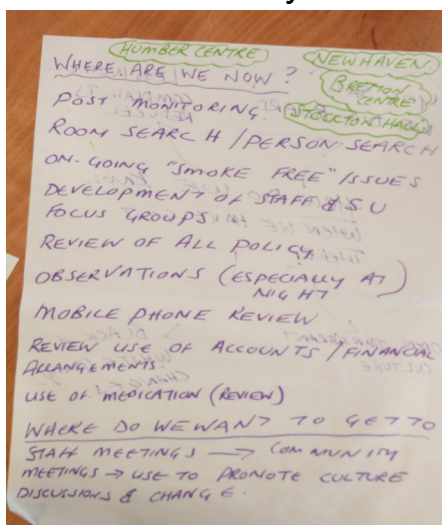 HUMBER CENTRE
NEWHAVEN
WHERE ARE WE NOW?
BRETTON
CENTRE
POST MONITORING.
STOCKTON HALL
ROOM SEARCH / PERSON SEARCH
ON-GOING "SMOKE FREE" ISSUES
DEVELOPMENT OF STAFF & S.U
FOCUS GROUPS
REVIEW OF ALL POLICY
OBSERVATIONS (ESPECIALLY AT
NIGHT)
MOBILE PHONE REVIEW
REVIEW USE OF ACCOUNTS / FINANCIAL
ARRANGEMENTS
USE OF MEDICATION (REVIEW)
WHERE DO WE WANT TO GET TO
STAFF MEETINGS → COMMUNITY
MEETINGS → USE TO PROMOTE CULTURE
DISCUSSIONS & CHANGE.